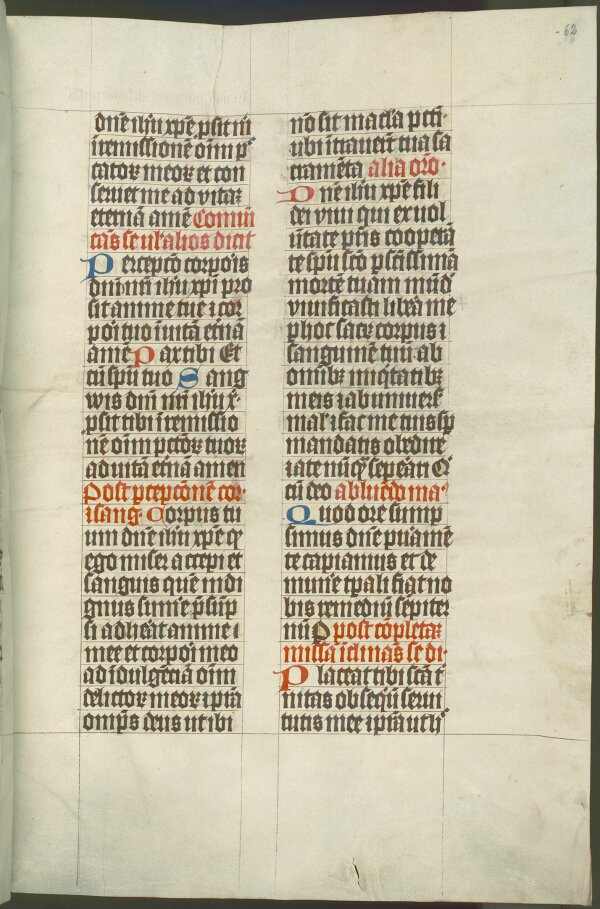 62
dnē ihu xpe p̄sit m̄
i remissionē oīm p̄
catoꝝ meoꝝ et con
seruet me ad vitaꝫ
eternā amē Comūi
cās se ul alios dicit
Percepcō corpoīs
dnī nrī ihu xpi pro
sit anime tue ⁊ cor
poī tuo ī uitā etnā
amē Pax tibi Et
cū spū tuo Sang
wis dnī nrī ihu x̄
p̄sit tibi ī remissio
nē oīm pctōꝝ tuoꝝ
ad uitā etnā amen
Post p̄cepcōnē cor
⁊ sang Corpus tu
um dnē ihu xpe qͥ
ego miser accepi et
sanguis quē indi
gnus sum̄e p̄sūp
si adheāt anime ⁊
mee et corpoī meo
ad īdulgēciā oīm
delictoꝝ meoꝝ ip̄ta
omp̄s deus ut ibi
nō sit macl̄a pctī
ubi ītrauert̄ tua sa
cramēta alia orō
Dnē ihu xpe fili
dei viui qui ex uol
ūtate pr̄is coopetā
te spū scō p scīssimā
mortē tuam mūd
viuificasti libera me
p hoc sacꝝ corpus ⁊
sanguinē tuū ab
omībꝫ iniqͥtatibꝫ
meis ⁊ ab uniuers̄
mal ⁊ fac me tuis sp̄
mandatis obedire
⁊ a te nūqͣ sepeāri Qͥ
cū deo abluēdo ma
Quod ore sump
simus dnē pura mē
te capiamus et de
mun̄e tp̄ali fiat no
bis remediū sepiter
nū post cōpletaꝫ
missā īclinās se di
Placeat tibi scā t̄
nitas obseqͥū serui
tutis mee ⁊ p̄ta ut h